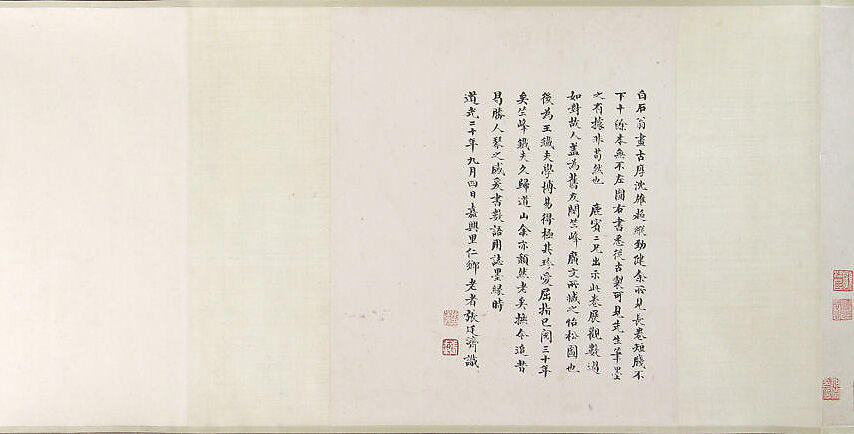 白石翁畫古厚沈雄超縱勁健余所見長卷短牋不
下十餘本無不左圖右書悉從古製可見先生筆墨
之有據非苟然也 鹿賓二兄出示此卷展觀數過
如對故人蓋為舊友關竺峰廣文所城之怡松圖也
後為王鐵夫學博易得極其珍愛屈指已閱三十年
矣竺峰鐵夫久歸道山余亦頹然老矣撫今追昔
曷勝人琴之感爰書數語用誌墨緣時
道光二十年九月四日嘉興里仁鄉老者張廷濟識